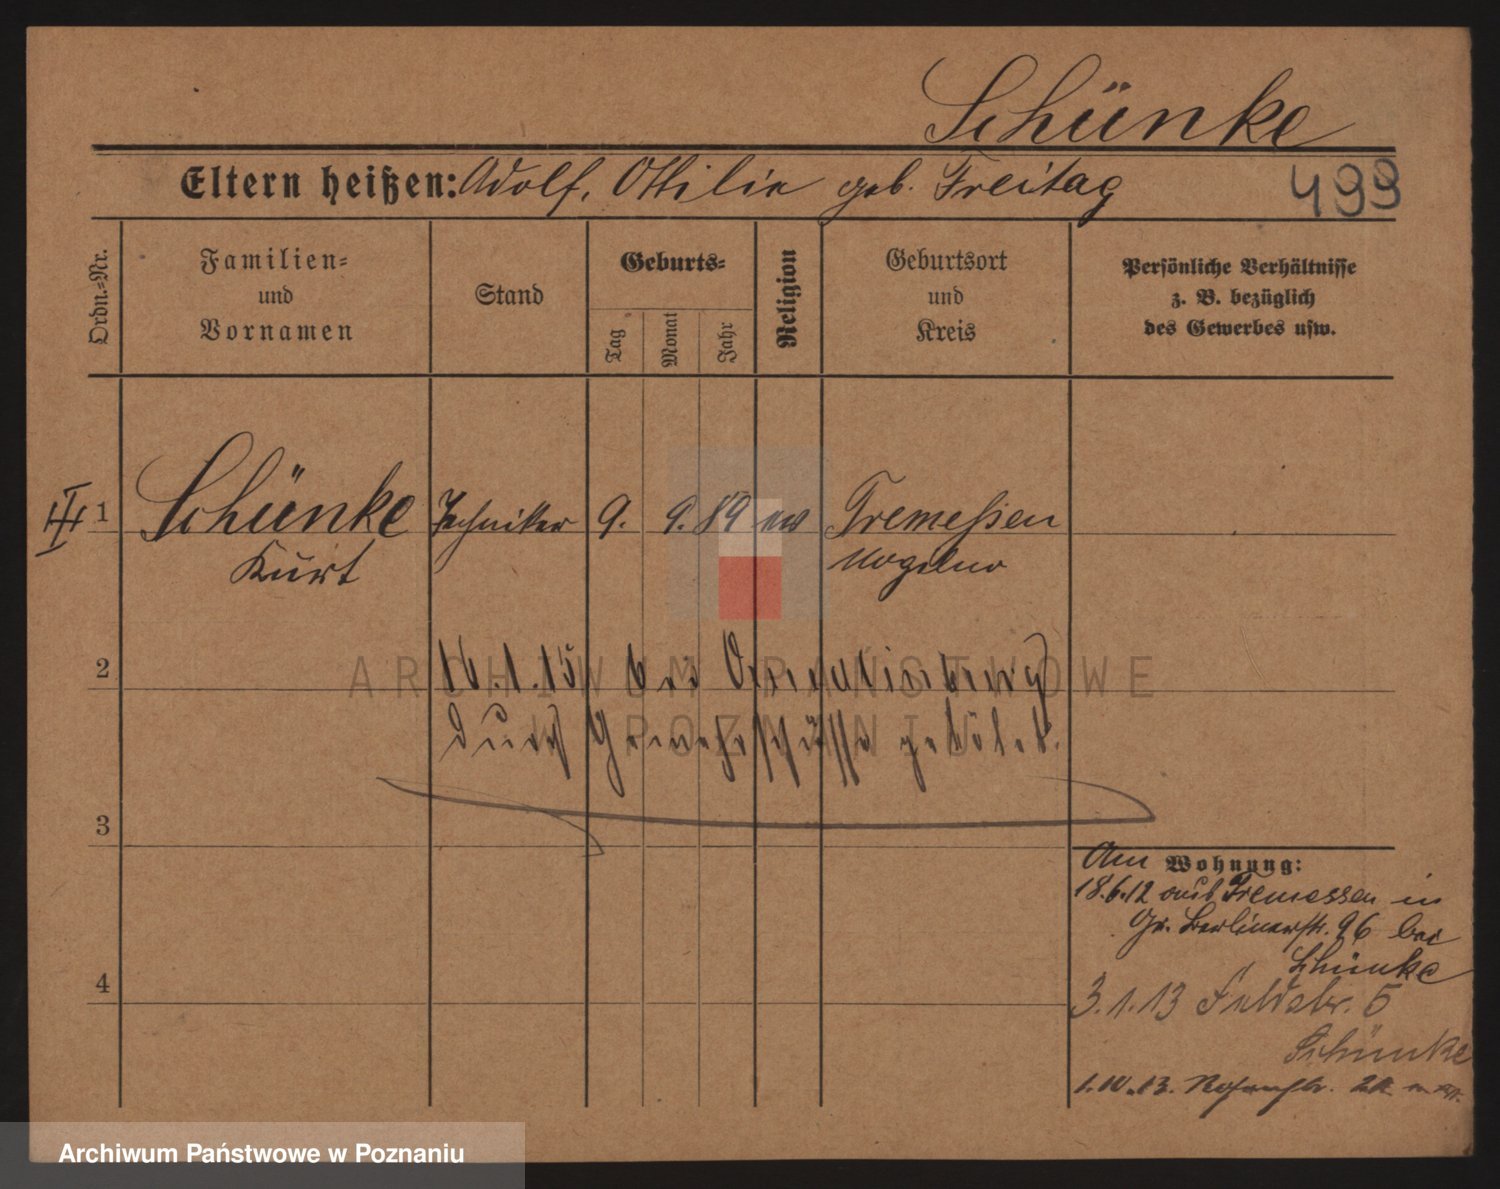 Schünke
Eltern heißen: Adolf, Ottilie geb. Freitag
499
Ordn.-Nr.
Familien-
und
Vornamen
Stand
Geburts-
Tag
Monat
Jahr
Religion
Geburtsort
und
Kreis
Persönliche Verhältnisse
z. B. bezüglich
des Gewerbes usw.
III 1 Schünke Techniker 9. 9. 89 ev Tremeßen
Kurt Mogilno
2 16.1.15 bei
durch Gewehrschüsse getötet.
3
Am Wohnung:
18.6.12 aus Tremessen in
Gr. Berlinerstr. 96 bei
Schünke
4
3.1.13 Feldstr. 5
Schünke
1.10.13.
ARCHIWUM PAŃSTWOWE
W POZNANIU
Archiwum Państwowe w Poznaniu